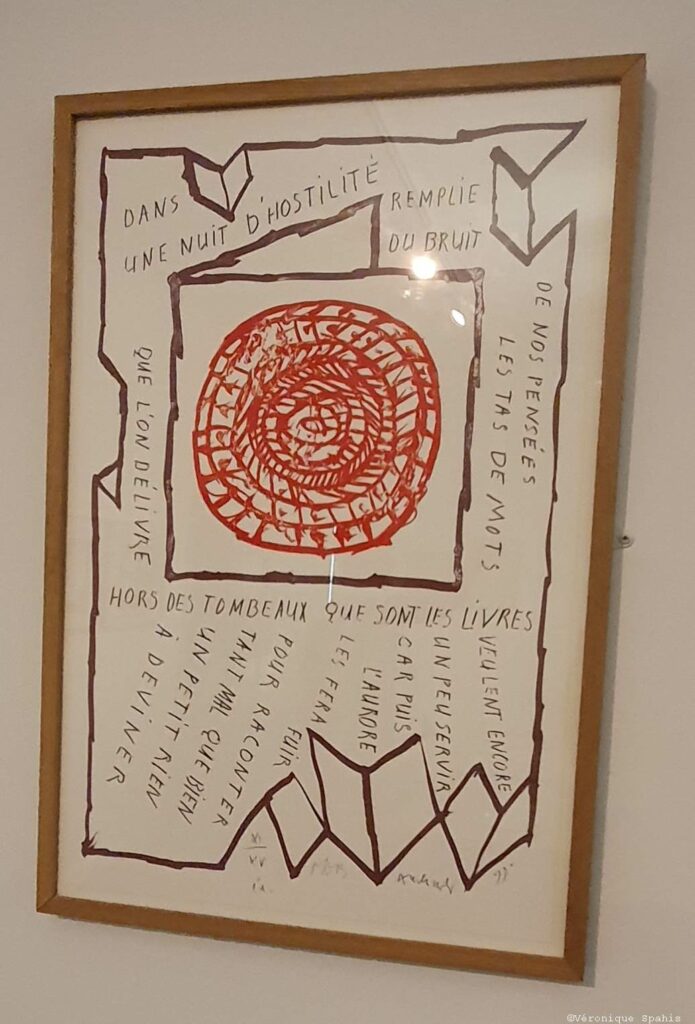 DANS
UNE NUIT D'HOSTILITÉ
REMPLIE
DU BRUIT
DE NOS PENSÉES
LES TAS DE MOTS
QUE L'ON DÉLIVRE
HORS DES TOMBEAUX QUE SONT LES LIVRES
VEULENT ENCORE
UN PEU SERVIR
CAR PUIS
L'AURORE
LES FERA
FUIR
POUR RACONTER
TANT MAL QUE BIEN
UN PETIT RIEN
À DEVINER
XI
XV
©Véronique Spahis